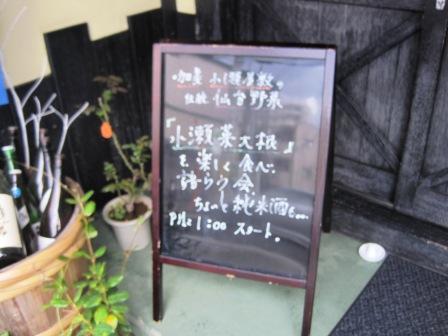 加美 小瀬 屋敷の
伝統 仙台野菜
『小瀬菜大根』
を 楽しく 食べ、
語らう 会
ちょっと 純米酒も…
PM 1:00 スタート。